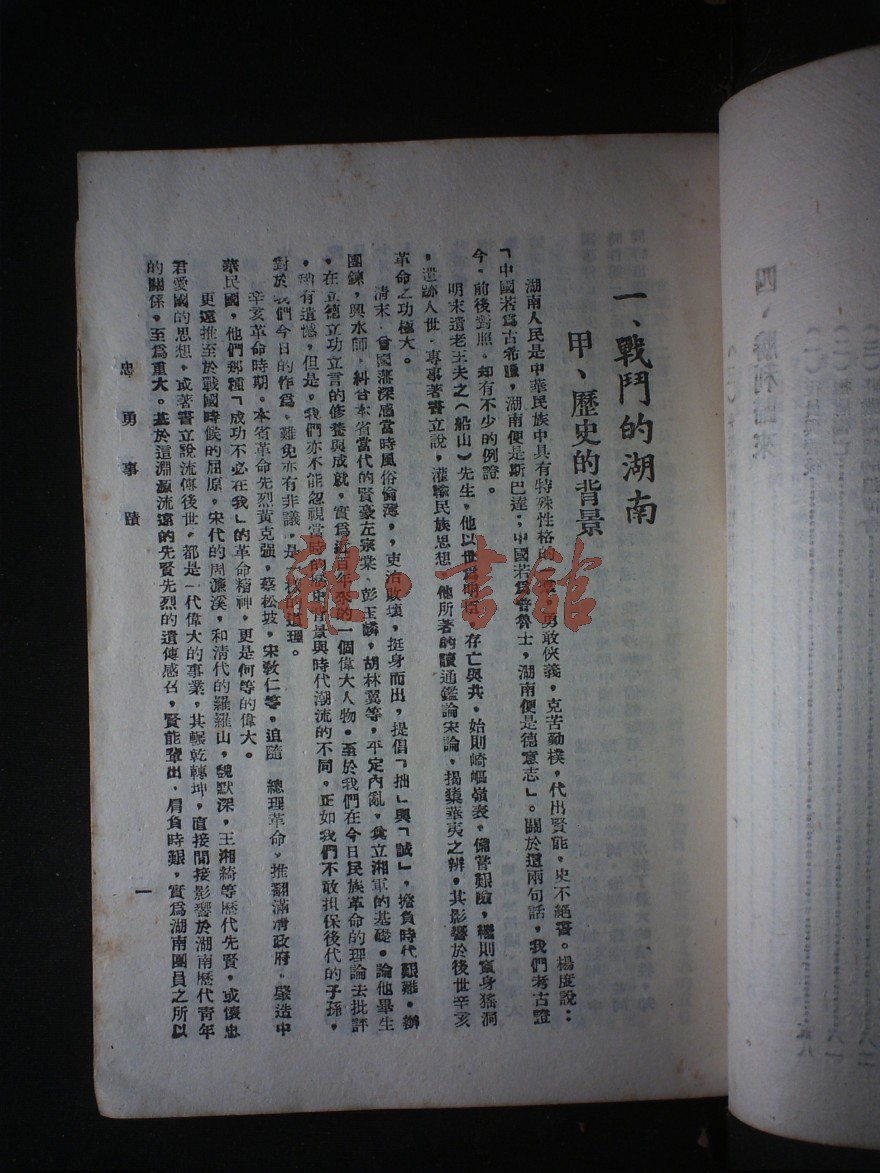 一、戰鬥的湖南
甲、歷史的背景
湖南人民是中華民族中具有特殊性格的 勇敢俠義，克苦勤樸，代出賢能，史不絕書。楊度說：
「中國若爲古希臘，湖南便是斯巴達；中國若爲普魯士，湖南便是德意志」。關於這兩句話，我們考古證
今，前後對照，却有不少的例證。
明末遺老王夫之（船山）先生，他以世爲明臣， 存亡與共，始則崎嶇嶺表，備嘗艱險，繼則竄身猺洞
，遺跡人世，專事著書立說，灌輸民族思想，他所著的讀通鑑論宋論，揭櫫華夷之辨，其影響於後世辛亥
革命之功極大。
清末，曾國藩深感當時風俗偷薄，吏治敗壞，挺身而出，提倡「拙」與「誠」，擔負時代艱難。辦
團鍊，興水師，糾合本省當代的賢豪左宗棠、彭玉麟，胡林翼等，平定內亂，奠立湘軍的基礎。論他畢生
，在立德立功立言的修養與成就，實爲近百年來的一個偉大人物。至於我們在今日民族革命的理論去批評
，稍有遺憾，但是，我們亦不能忽視當時的歷史背景與時代潮流的不同。正如我們不敢担保後代的子孫，
對於我們今日的作爲，難免亦有非議，是 樣的道理。
辛亥革命時期，本省革命先烈黃克强，蔡松坡，宋敎仁等，追隨 總理革命，推翻滿清政府，肇造中
華民國，他們那種「成功不必在我」的革命精神，更是何等的偉大。
更遠推至於戰國時候的屈原，宋代的周濂溪，和清代的羅羅山，魏默深，王湘綺等歷代先賢，或懷忠
君愛國的思想，或著書立說流傳後世，都是一代偉大的事業，其輾乾轉坤，直接間接影響於湖南歷代青年
的關係，至爲重大。基於這淵源流遠的先賢先烈的遺傳感召，賢能輩出，肩負時艱，實爲湖南團員之所以
忠勇事蹟
一
雜·書館
四、勝利歸來